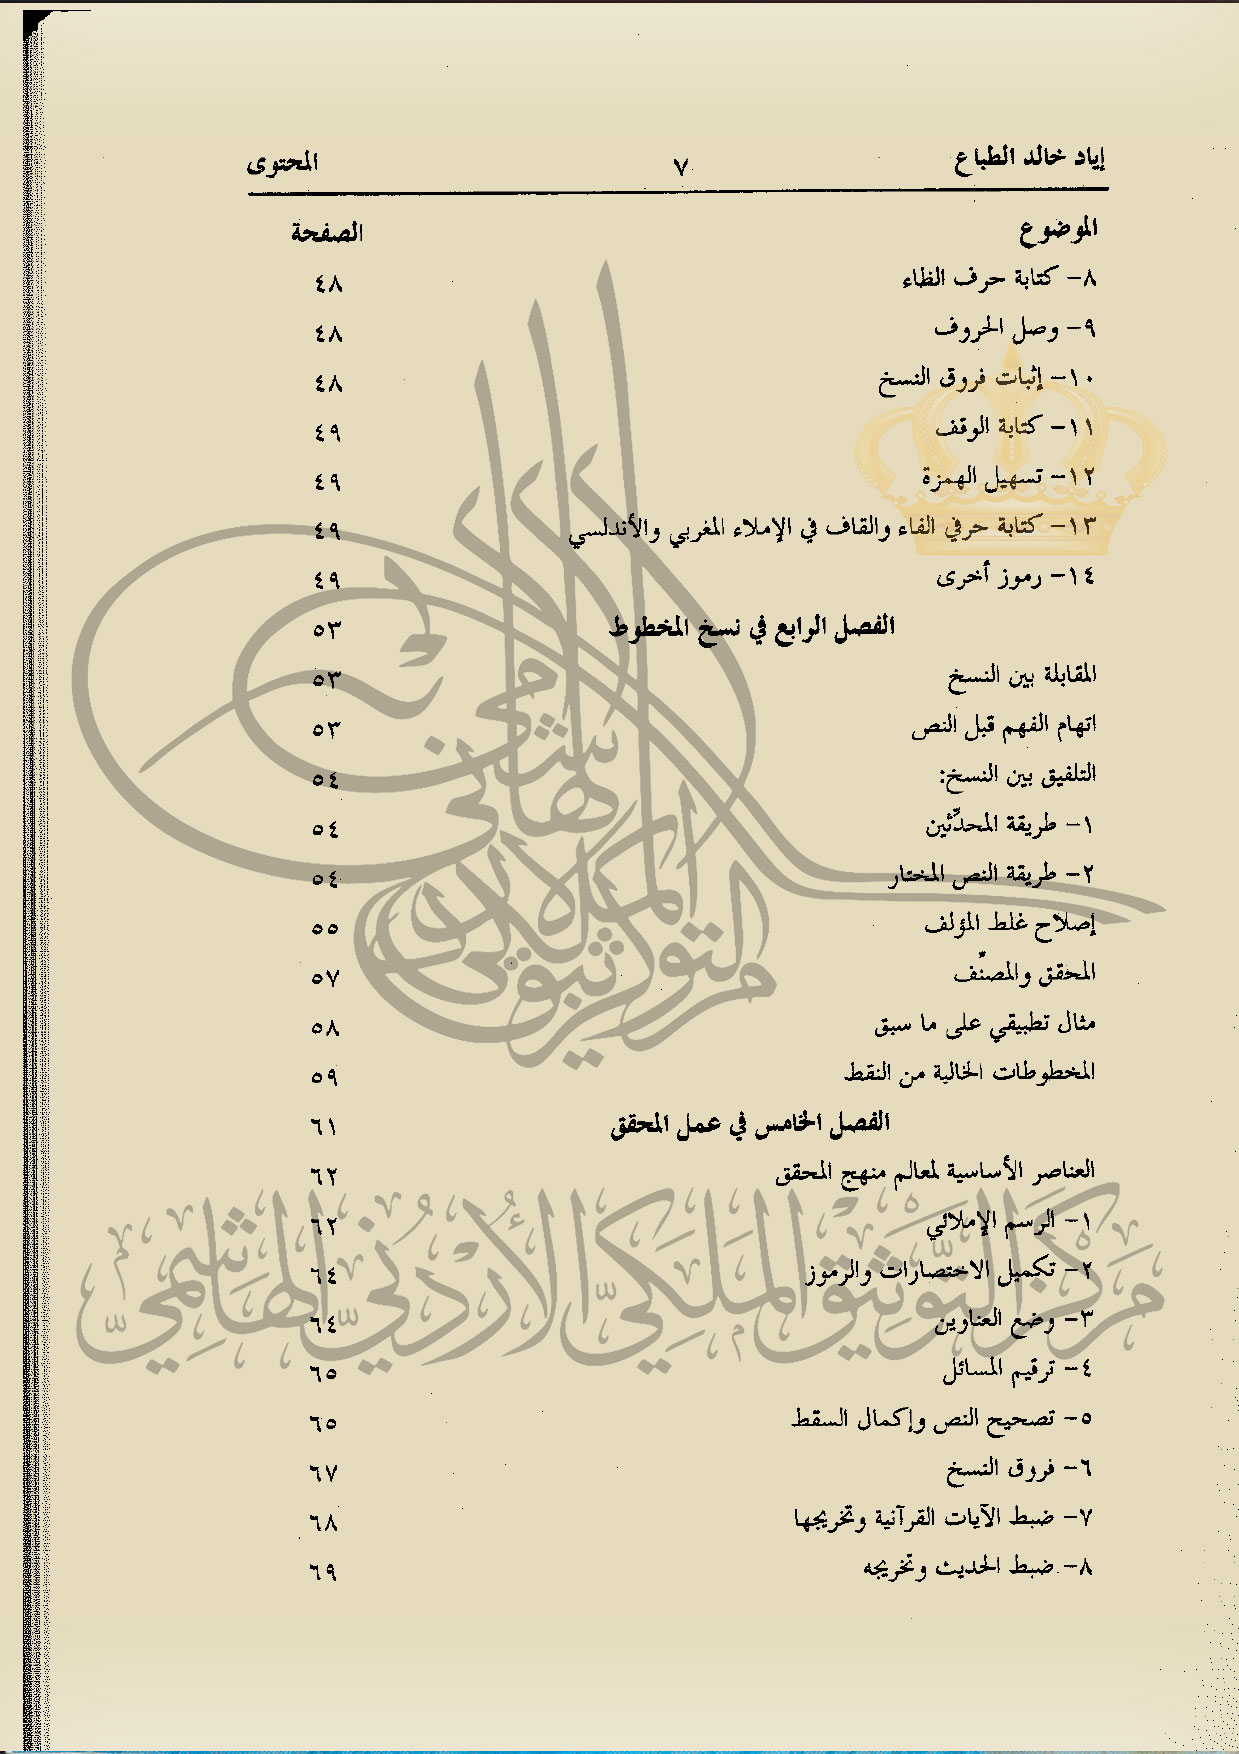 إياد خالد الطباع ٧ المحتوى
الموضوع الصفحة
٨- كتابة حرف الظاء ٤٨
٩- وصل الحروف ٤٨
١٠- إثبات فروق النسخ ٤٨
١١- كتابة الوقف ٤٩
١٢- تسهيل الهمزة ٤٩
١٣- كتابة حرفي الفاء والقاف في الإملاء المغربي والأندلسي ٤٩
١٤- رموز أخرى ٤٩
الفصل الرابع في نسخ المخطوط ٥٣
المقابلة بين النسخ ٥٣
اتهام الفهم قبل النص ٥٣
التلفيق بين النسخ: ٥٤
١- طريقة المحدِّثين ٥٤
٢- طريقة النص المختار ٥٤
إصلاح غلط المؤلف ٥٥
المحقق والمصنِّف ٥٧
مثال تطبيقي على ما سبق ٥٨
المخطوطات الخالية من النقط ٥٩
الفصل الخامس في عمل المحقق ٦١
العناصر الأساسية لمعالم منهج المحقق ٦٢
١- الرسم الإملائي ٦٢
٢- تكميل الاختصارات والرموز ٦٤
٣- وضع العناوين ٦٤
٤- ترقيم المسائل ٦٥
٥- تصحيح النص وإكمال السقط ٦٥
٦- فروق النسخ ٦٧
٧- ضبط الآيات القرآنية وتخريجها ٦٨
٨- ضبط الحديث وتخريجه ٦٩
مركز التوثيق الملكي الأردني الهاشمي